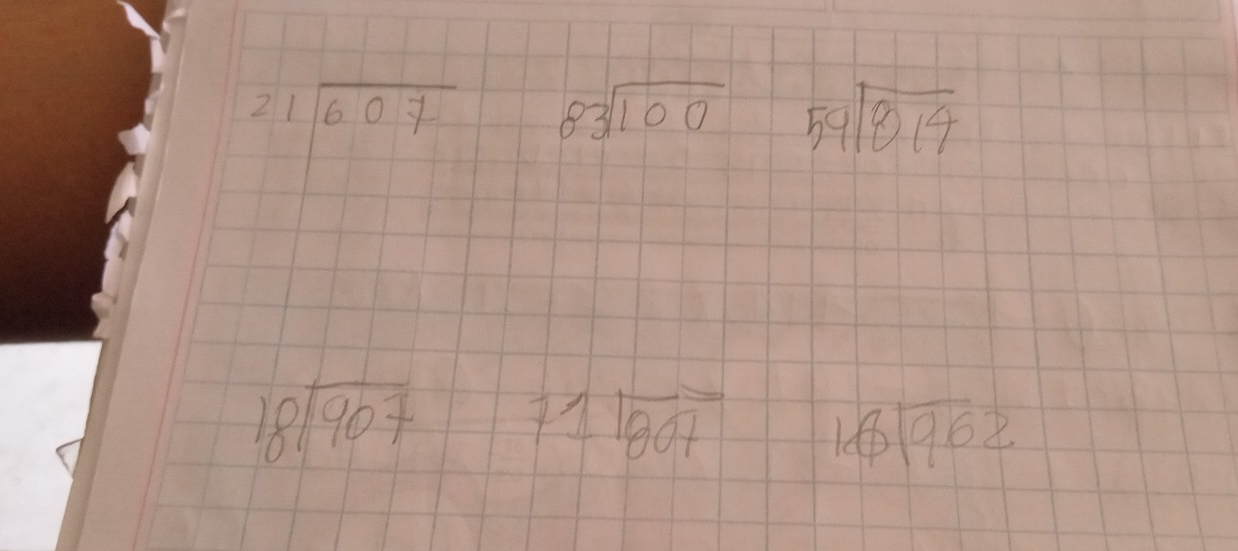 21 607 83 100 59 814
18 907 71 807 962